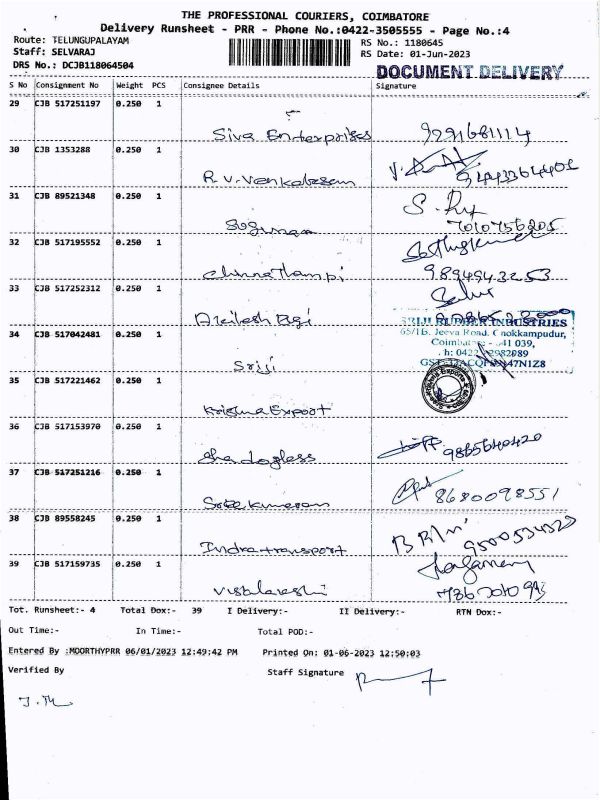 THE PROFESSIONAL COURIERS, COIMBATORE
Delivery Runsheet - PRR - Phone No.:0422-3505555 - Page No.:4
Route: TELUNGUPALAYAM
RS No.: 1180645
Staff: SELVARAJ
RS Date: 01-Jun-2023
DRS No.: DCJB118064504
DOCUMENT DELIVERY
S No Consignment No Weight PCS Consignee Details Signature
29 CJB 517251197 0.250 1
Siva Enterprises 9291681114
30 CJB 1353288 0.250 1
R.V. Venkatesam
31 CJB 89521348 0.250 1
Suguna 7010756205
32 CJB 517195552 0.250 1
Chinnathampi 9894943253
33 CJB 517252312 0.250 1
34 CJB 517042481 0.250 1
SRIJI RUBBER INDUSTRIES
65/1B, Jeeva Road, Chokkampudur,
041 039,
Sriji
35 CJB 517221462 0.250 1
Krishna Export
36 CJB 517153970 0.250 1
9865640420
37 CJB 517251216 0.250 1
Sree Kumaran 8680098551
38 CJB 89558245 0.250 1
Indra transport
39 CJB 517159735 0.250 1
Visalakshi
Tot. Runsheet:- 4 Total Dox:- 39 I Delivery:- II Delivery:- RTN Dox:-
Out Time:- In Time:- Total POD:-
Entered By :MOORTHYPRR 06/01/2023 12:49:42 PM Printed On: 01-06-2023 12:50:03
Verified By Staff Signature